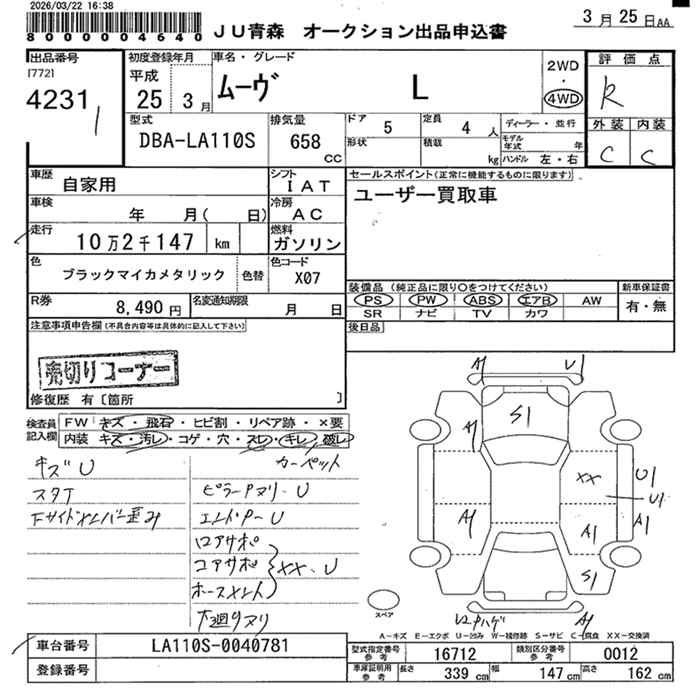 2026/03/22 16:38
8000004640
JU青森 オークション出品申込書
3月25日AA
出品番号
[772]
4231
初度登録年月
平成
25 3月
車名・グレード
ムーヴ L
2WD
・
4WD
評価点
R
型式
DBA-LA110S
排気量
658
CC
ドア
5
定員
4人
ディーラー・並行
形状
積載
kg
モデル年式
年
ハンドル 左・右
外装 内装
C C
車歴
自家用
シフト
IAT
セールスポイント(正常に機能するものに限ります)
ユーザー買取車
車検
年 月( 日)
冷房
AC
走行
10万2千147 km
燃料
ガソリン
色
ブラックマイカメタリック
色替
色コード
X07
装備品(純正品に限り○をつけてください)
新車保証書
PS PW ABS エアB AW
SR ナビ TV カワ
有・無
R券
8,490円
名変通知期限
月 日
後日品
注意事項申告欄(不具合内容等は具体的に記入して下さい)
売切りコーナー
修復歴 有〔箇所 〕
検査員
記入欄
FW キズ・飛石・ヒビ割・リペア跡・×要
内装 キズ・汚レ・コゲ・穴・スレ・キレ・破レ
キズU
カーペット
スタT
ピラーPヌリ-U
Fサイドメンバー歪み
エンドP-U
ロアサポ
コアサポ
XX、U
ホースメント
下廻りヌリ
A1
U1
S1
A1
XX
U1
U1
A1
A1
A1
S1
スペア
A1
A-キズ E-エクボ U-凹み W-補修跡 S-サビ C-腐食 XX-交換済
車台番号
LA110S-0040781
登録番号
型式指定番号
参考
16712
類別区分番号
参考
0012
車庫証明用
参考
長さ
339 cm
幅
147 cm
高さ
162 cm